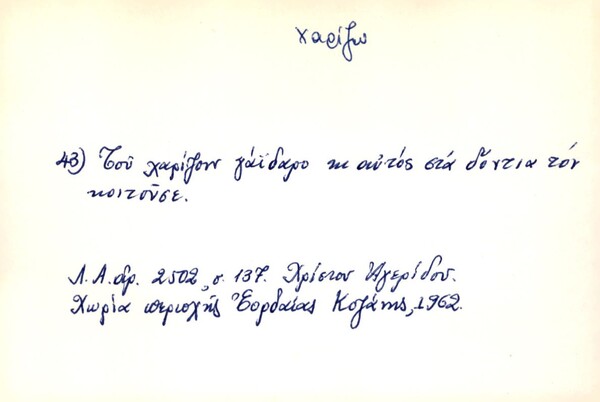 χαρίζω
43) Τοῦ χαρίζουν γάϊδαρο κι αὐτός στά δόντια τόν
κοιτοῦσε.
Λ.Α. ἀρ. 2502, σ. 137. Χρίστου Ἀγερίδου.
Χωρία περιοχῆς Ἑορδαίας Κοζάνης, 1962.